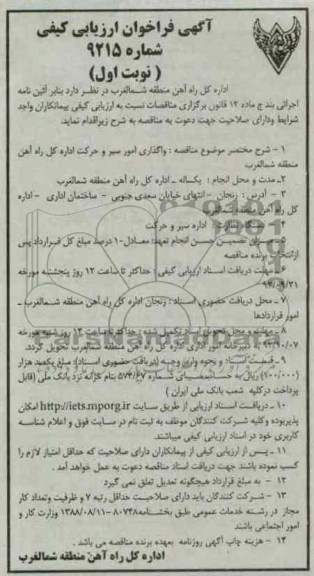 آگهی فراخوان ارزیابی کیفی
شماره ۹۲۱۵
( نوبت اول )
اداره کل راه آهن منطقه شمالغرب در نظر دارد بنابر آئین نامه
اجرائی بند ج ماده ۱۲ قانون برگزاری مناقصات نسبت به ارزیابی کیفی پیمانکاران واجد
شرایط ودارای صلاحیت جهت دعوت به مناقصه به شرح زیراقدام نماید.
۱ - شرح مختصر موضوع مناقصه : واگذاری امور سیر و حرکت اداره کل راه آهن
منطقه شمالغرب
۲ - مدت و محل انجام : یکساله - اداره کل راه آهن منطقه شمالغرب
۳ - آدرس : زنجان - انتهای خیابان سعدی جنوبی - ساختمان اداری - اداره
کل راه آهن
اداره سیر و حرکت
تضمین حسن انجام تعهد: معادل ۱۰ درصد مبلغ کل قرارداد پس
ازانتخاب برنده مناقصه
۶ - مهلت دریافت اسناد ارزیابی کیفی : حداکثر تا ساعت ۱۲ روز پنجشنبه مورخه
۷ - محل دریافت حضوری اسناد : زنجان اداره کل راه آهن منطقه شمالغرب -
امور قراردادها
۸ - مهلت و محل تحویل اسناد تکمیل شده : حداکثر تا ساعت ۱۴ روز شنبه مورخه
شمالغرب تحویل گردد.
۹ - قیمت اسناد و نحوه واریز وجه (دریافت حضوری اسناد): مبلغ یکصد هزار
(۱۰۰/۰۰۰) ریال به حساب شماره بنام خزانه نزد بانک ملی (قابل
پرداخت درکلیه شعب بانک ملی ایران )
۱۰ - دریافت اسناد ارزیابی از طریق سایت http://iets.mporg.ir امکان
پذیربوده وکلیه شرکت کنندگان موظف به ثبت نام در سایت فوق و اعلام شناسه
کاربری خود در اسناد ارزیابی کیفی میباشند.
۱۱ - پس از ارزیابی کیفی از پیمانکاران دارای صلاحیت که حداقل امتیاز لازم را
کسب نموده باشند جهت دریافت اسناد مناقصه دعوت به عمل خواهد آمد .
۱۲ - به مبلغ قرارداد هیچگونه تعدیل تعلق نمی گیرد
۱۳ - شرکت کنندگان باید دارای صلاحیت حداقل رتبه ۷ و ظرفیت وتعداد کار
مجاز در رشته خدمات عمومی طبق بخشنامه ۸۰۷۴۸ - ۱۳۸۸/۰۸/۱۱ وزارت کار و
امور اجتماعی باشند
۱۴ - هزینه چاپ آگهی روزنامه بعهده برنده مناقصه می باشد .
اداره کل راه آهن منطقه شمالغرب